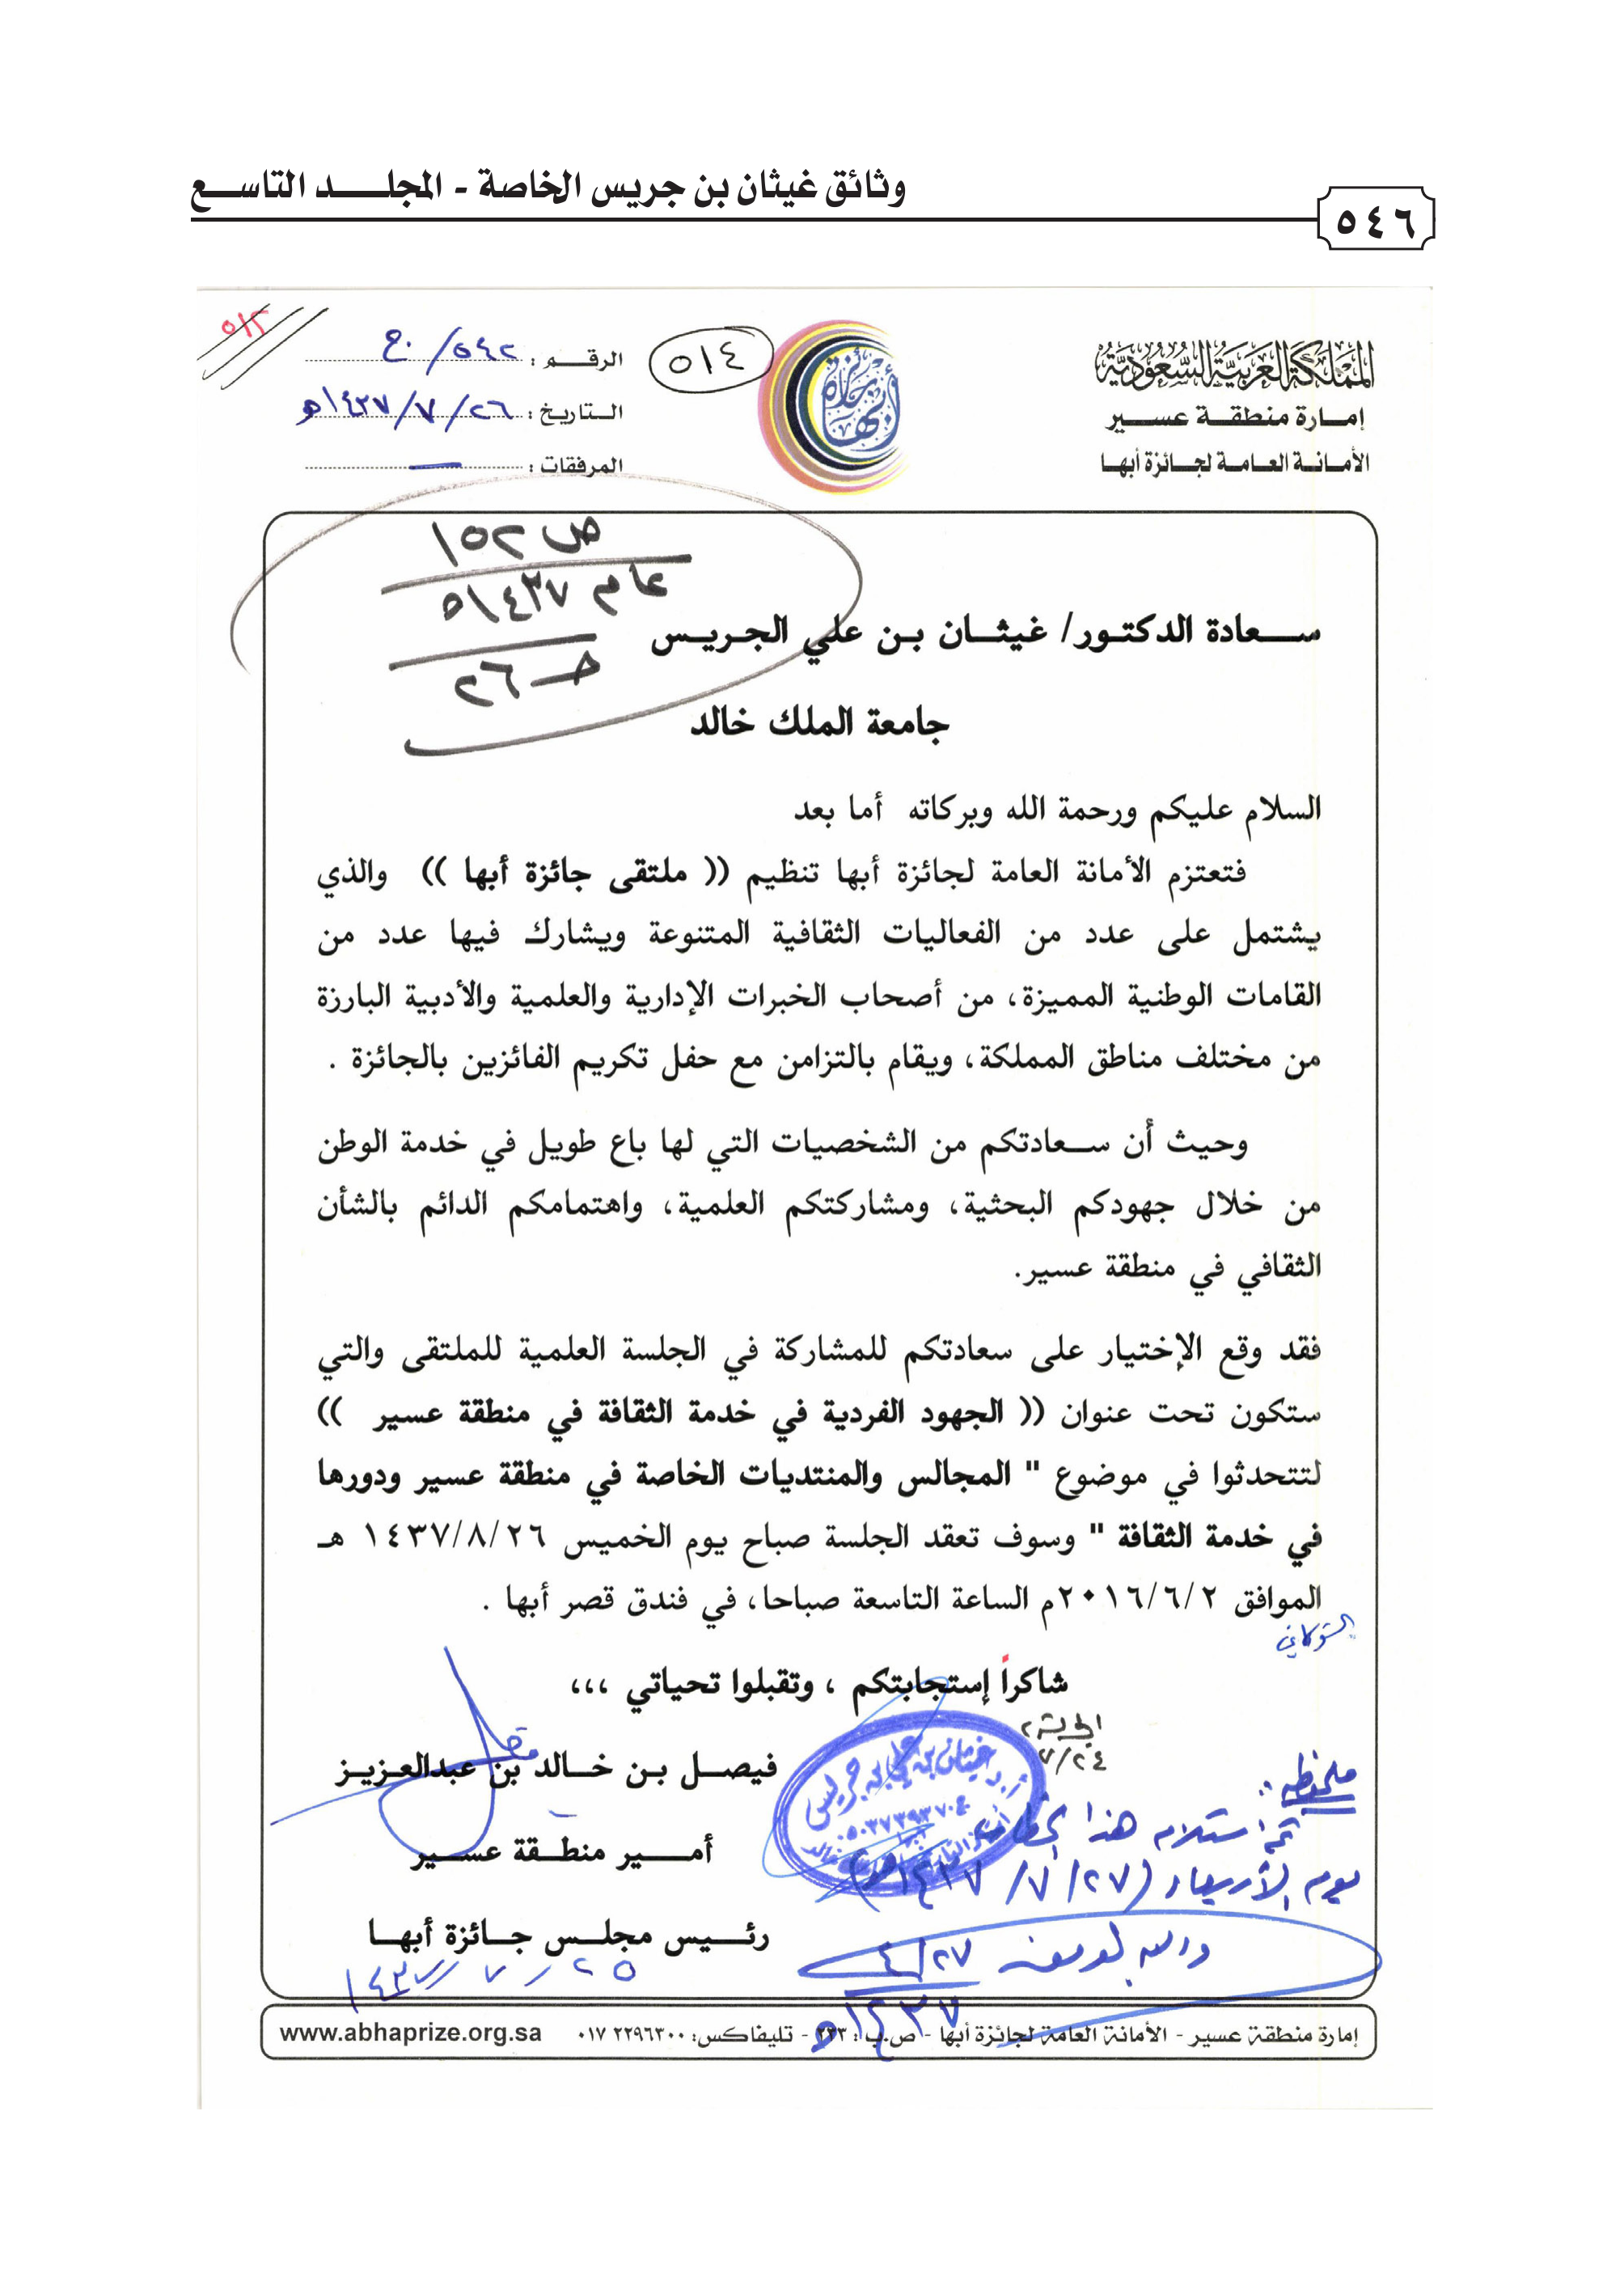 وثائق غيثان بن جريس الخاصة - المجلد التاسع
٥٤٦
المملكة العربية السعودية
إمارة منطقة عسير
الأمانة العامة لجائزة أبها
جائزة أبها
٥١٤
الرقم : ٥٤٢/ج
التاريخ : ٢٦/٧/١٤٣٧هـ
المرفقات : —
ص ١٥٢
عام ١٤٣٧هـ
حـ ٢٦
سعادة الدكتور/ غيثان بن علي الجريس
جامعة الملك خالد
السلام عليكم ورحمة الله وبركاته أما بعد
فتعتزم الأمانة العامة لجائزة أبها تنظيم (( ملتقى جائزة أبها )) والذي
يشتمل على عدد من الفعاليات الثقافية المتنوعة ويشارك فيها عدد من
القامات الوطنية المميزة، من أصحاب الخبرات الإدارية والعلمية والأدبية البارزة
من مختلف مناطق المملكة، ويقام بالتزامن مع حفل تكريم الفائزين بالجائزة .
وحيث أن سعادتكم من الشخصيات التي لها باع طويل في خدمة الوطن
من خلال جهودكم البحثية، ومشاركتكم العلمية، واهتمامكم الدائم بالشأن
الثقافي في منطقة عسير.
فقد وقع الإختيار على سعادتكم للمشاركة في الجلسة العلمية للملتقى والتي
ستكون تحت عنوان (( الجهود الفردية في خدمة الثقافة في منطقة عسير ))
لتتحدثوا في موضوع " المجالس والمنتديات الخاصة في منطقة عسير ودورها
في خدمة الثقافة " وسوف تعقد الجلسة صباح يوم الخميس ١٤٣٧/٨/٢٦ هـ
الموافق ٢٠١٦/٦/٢م الساعة التاسعة صباحا، في فندق قصر أبها .
شاكراً إستجابتكم ، وتقبلوا تحياتي ،،،
فيصل بن خالد بن عبدالعزيز
أمير منطقة عسير
رئيس مجلس جائزة أبها
٢٥/٧/١٤٣٧
أ.د. غيثان بن علي بن جريس
ملحوظة :
تم استلام هذا الخطاب
يوم الأربعاء (٢٧/٧/١٤٣٧هـ)
والله الموفق
١٤٣٧هـ
إمارة منطقة عسير - الأمانة العامة لجائزة أبها - ص.ب : ٢٢٣ - تليفاكس: ٠١٧ ٢٢٩٦٣٠٠
www.abhaprize.org.sa